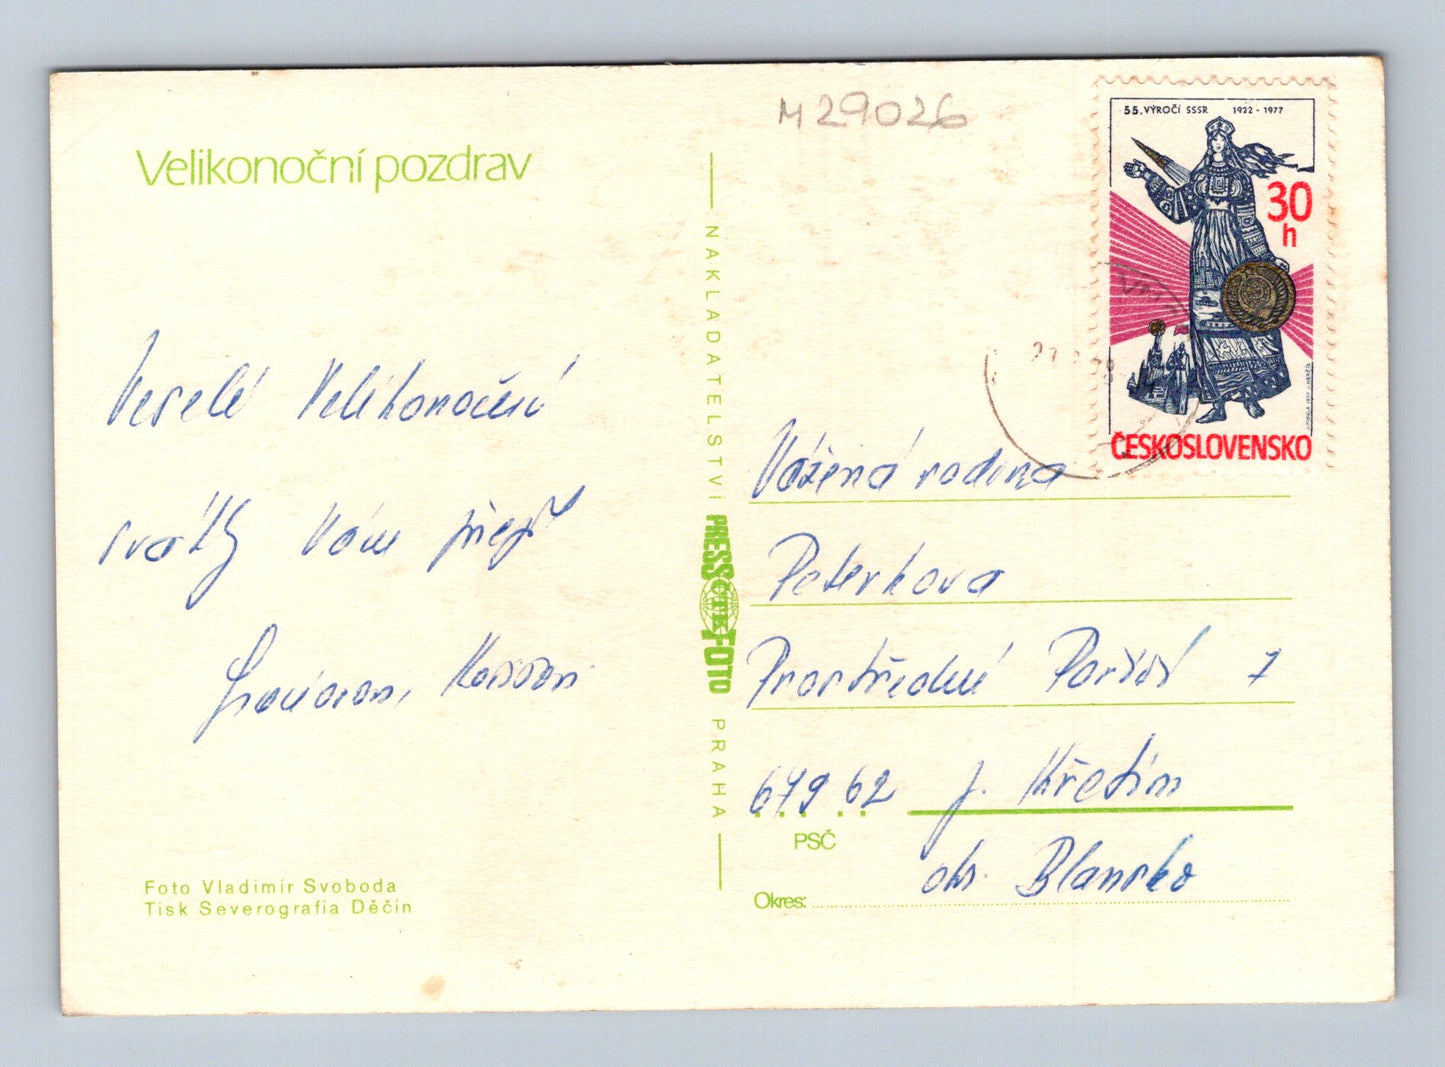 M 29026
55. VÝROČÍ SSSR 1922 - 1977
30
h
ČESKOSLOVENSKO
Velikonoční pozdrav
Veselé Velikonoční
svátky Vám přejí
NAKLADATELSTVÍ PRESSFOTO PRAHA
ČTK
Vážená rodina
Peterkova
Prostřední Poříčí 7
679 62 p. Křetín
PSČ
okr. Blansko
Okres:
Foto Vladimír Svoboda
Tisk Severografia Děčín